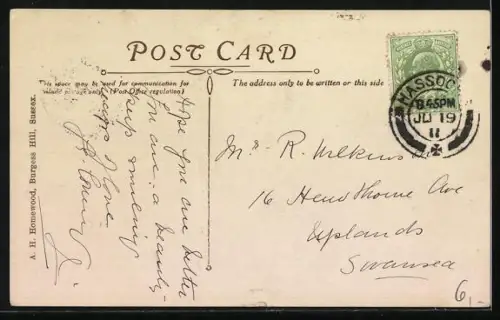 POST CARD
This space may be used for communication for
inland postage only. (Post Office regulation)
The address only to be written or this side
A. H. Homewood, Burgess Hill, Sussex.
Hope you are better
you are a beauty
keep smiling
love
HASSOC
8.45PM
JU 19
11
Mr R. Wilkins
16 Hawthorne Ave
Uplands
Swansea
6,-